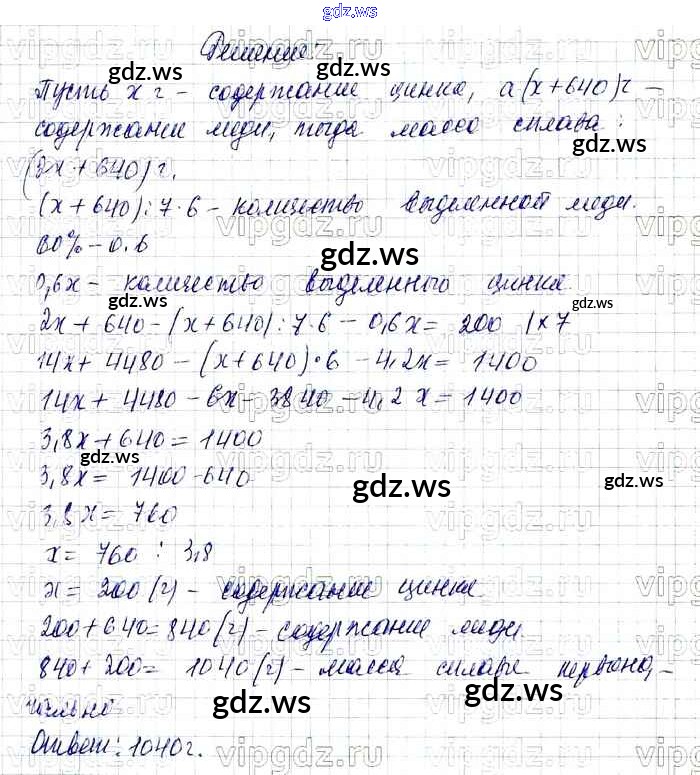 gdz.ws
Решение:
Пусть x г - содержание цинка, а (x+640) г -
содержание меди, тогда масса сплава:
(2x+640) г.
(x+640):7·6 - количество выделенной меди.
60% - 0.6
0,6x - количество выделенного цинка.
2x + 640 - (x+640):7·6 - 0,6x = 200 |×7
14x + 4480 - (x+640)·6 - 4,2x = 1400
14x + 4480 - 6x - 3840 - 4,2x = 1400
3,8x + 640 = 1400
3,8x = 1400 - 640
3,8x = 760
x = 760 : 3,8
x = 200 (г) - содержание цинка.
200 + 640 = 840 (г) - содержание меди.
840 + 200 = 1040 (г) - масса сплава первона-
чально
Ответ: 1040 г.